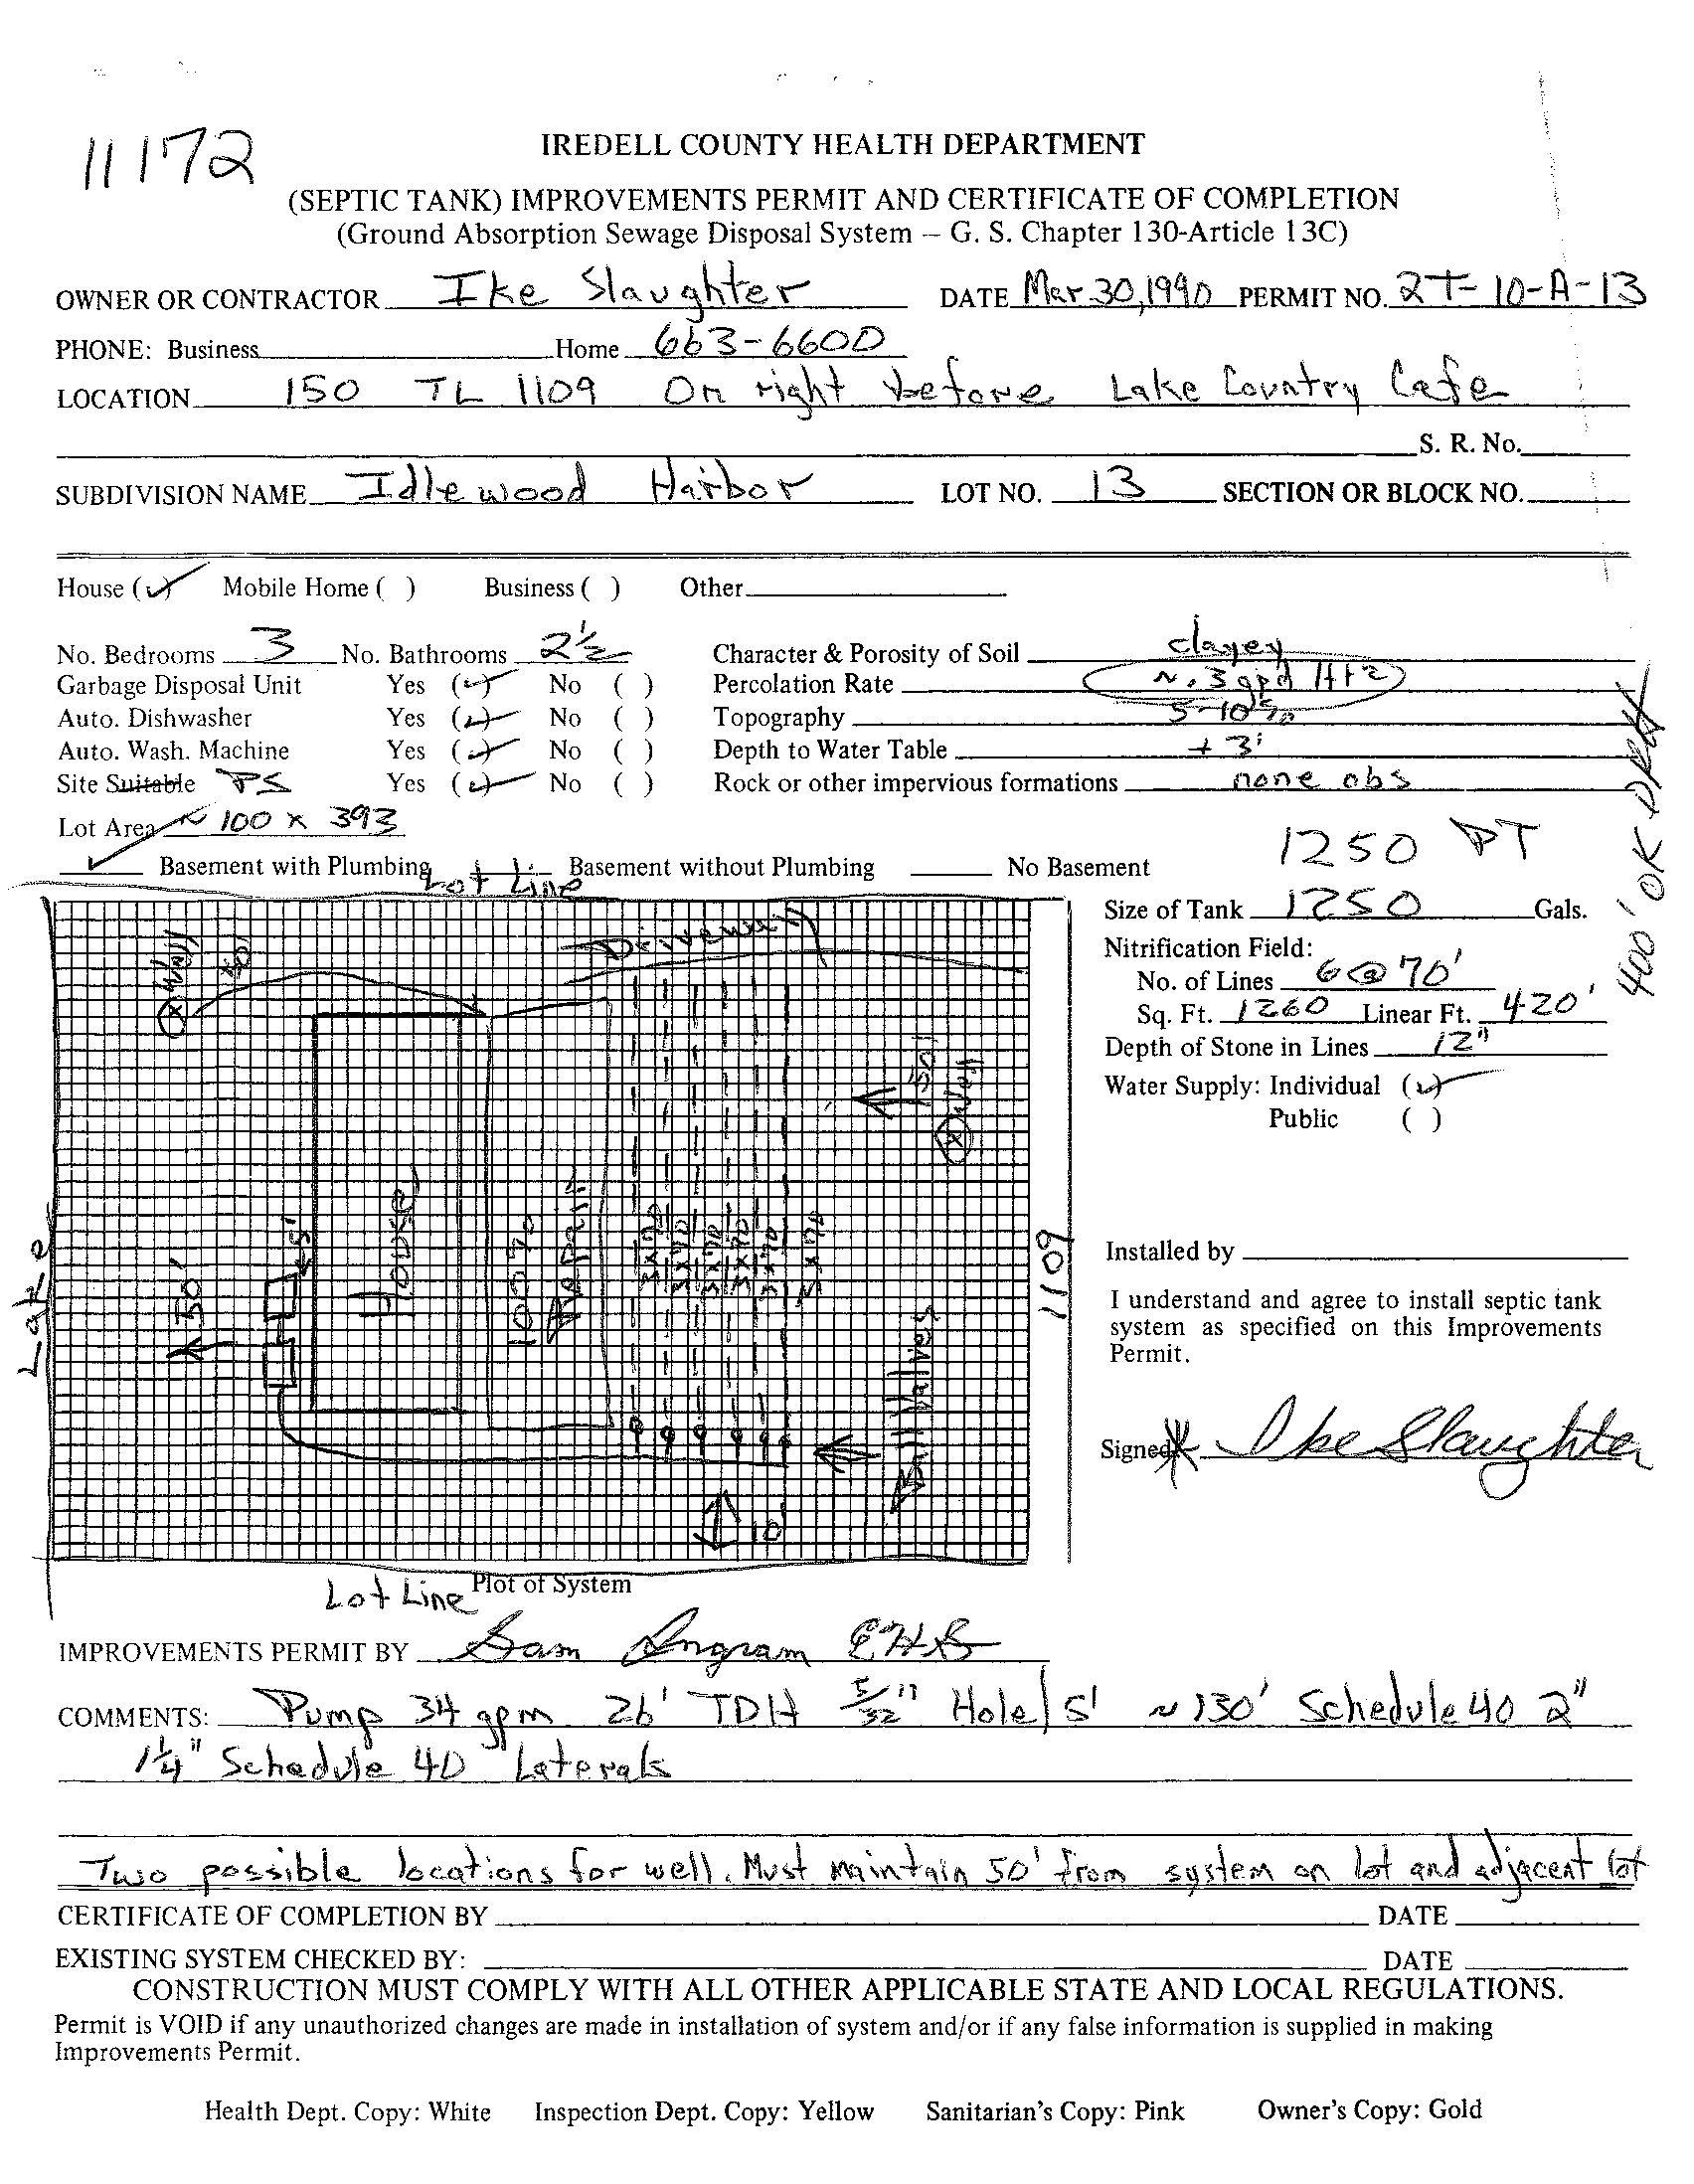 11172
IREDELL COUNTY HEALTH DEPARTMENT
(SEPTIC TANK) IMPROVEMENTS PERMIT AND CERTIFICATE OF COMPLETION
(Ground Absorption Sewage Disposal System – G. S. Chapter 130-Article 13C)
OWNER OR CONTRACTOR Ike Slaughter DATE Mar 30, 1990 PERMIT NO. 2T-10-A-13
PHONE: Business Home 663-6600
LOCATION 150 TL 1109 On right before Lake Country Cafe
S. R. No.
SUBDIVISION NAME Idlewood Harbor LOT NO. 13 SECTION OR BLOCK NO.
House (✓) Mobile Home ( ) Business ( ) Other
No. Bedrooms 3 No. Bathrooms 2½ Character & Porosity of Soil clayey
Garbage Disposal Unit Yes (✓) No ( ) Percolation Rate ~.3 gpd/ft2
Auto. Dishwasher Yes (✓) No ( ) Topography 5-10%
Auto. Wash. Machine Yes (✓) No ( ) Depth to Water Table +3'
Site Suitable PS Yes (✓) No ( ) Rock or other impervious formations none obs
Lot Area ~ 100 x 393
✓ Basement with Plumbing Basement without Plumbing No Basement
1250 PT
400' OK
Lot Line
Size of Tank 1250 Gals.
Nitrification Field:
No. of Lines 6@70'
Sq. Ft. 1260 Linear Ft. 420'
Depth of Stone in Lines 12"
Water Supply: Individual (✓)
Public ( )
Driveway
Well
50'
50'
Well
House
100%
Repair
3x70
3x70
3x70
3x70
3x70
3x70
5'
50'
Lake
1109
Ball Valves
10'
Installed by
I understand and agree to install septic tank
system as specified on this Improvements
Permit.
Signed Ike Slaughter
Lot Line Plot of System
IMPROVEMENTS PERMIT BY Sam Ingram EHS
COMMENTS: Pump 34 gpm 26' TDH 5/32" Hole/5' ~130' Schedule 40 2"
1¼" Schedule 40 Laterals
Two possible locations for well. Must maintain 50' from system on lot and adjacent lot
CERTIFICATE OF COMPLETION BY DATE
EXISTING SYSTEM CHECKED BY: DATE
CONSTRUCTION MUST COMPLY WITH ALL OTHER APPLICABLE STATE AND LOCAL REGULATIONS.
Permit is VOID if any unauthorized changes are made in installation of system and/or if any false information is supplied in making
Improvements Permit.
Health Dept. Copy: White Inspection Dept. Copy: Yellow Sanitarian's Copy: Pink Owner's Copy: Gold